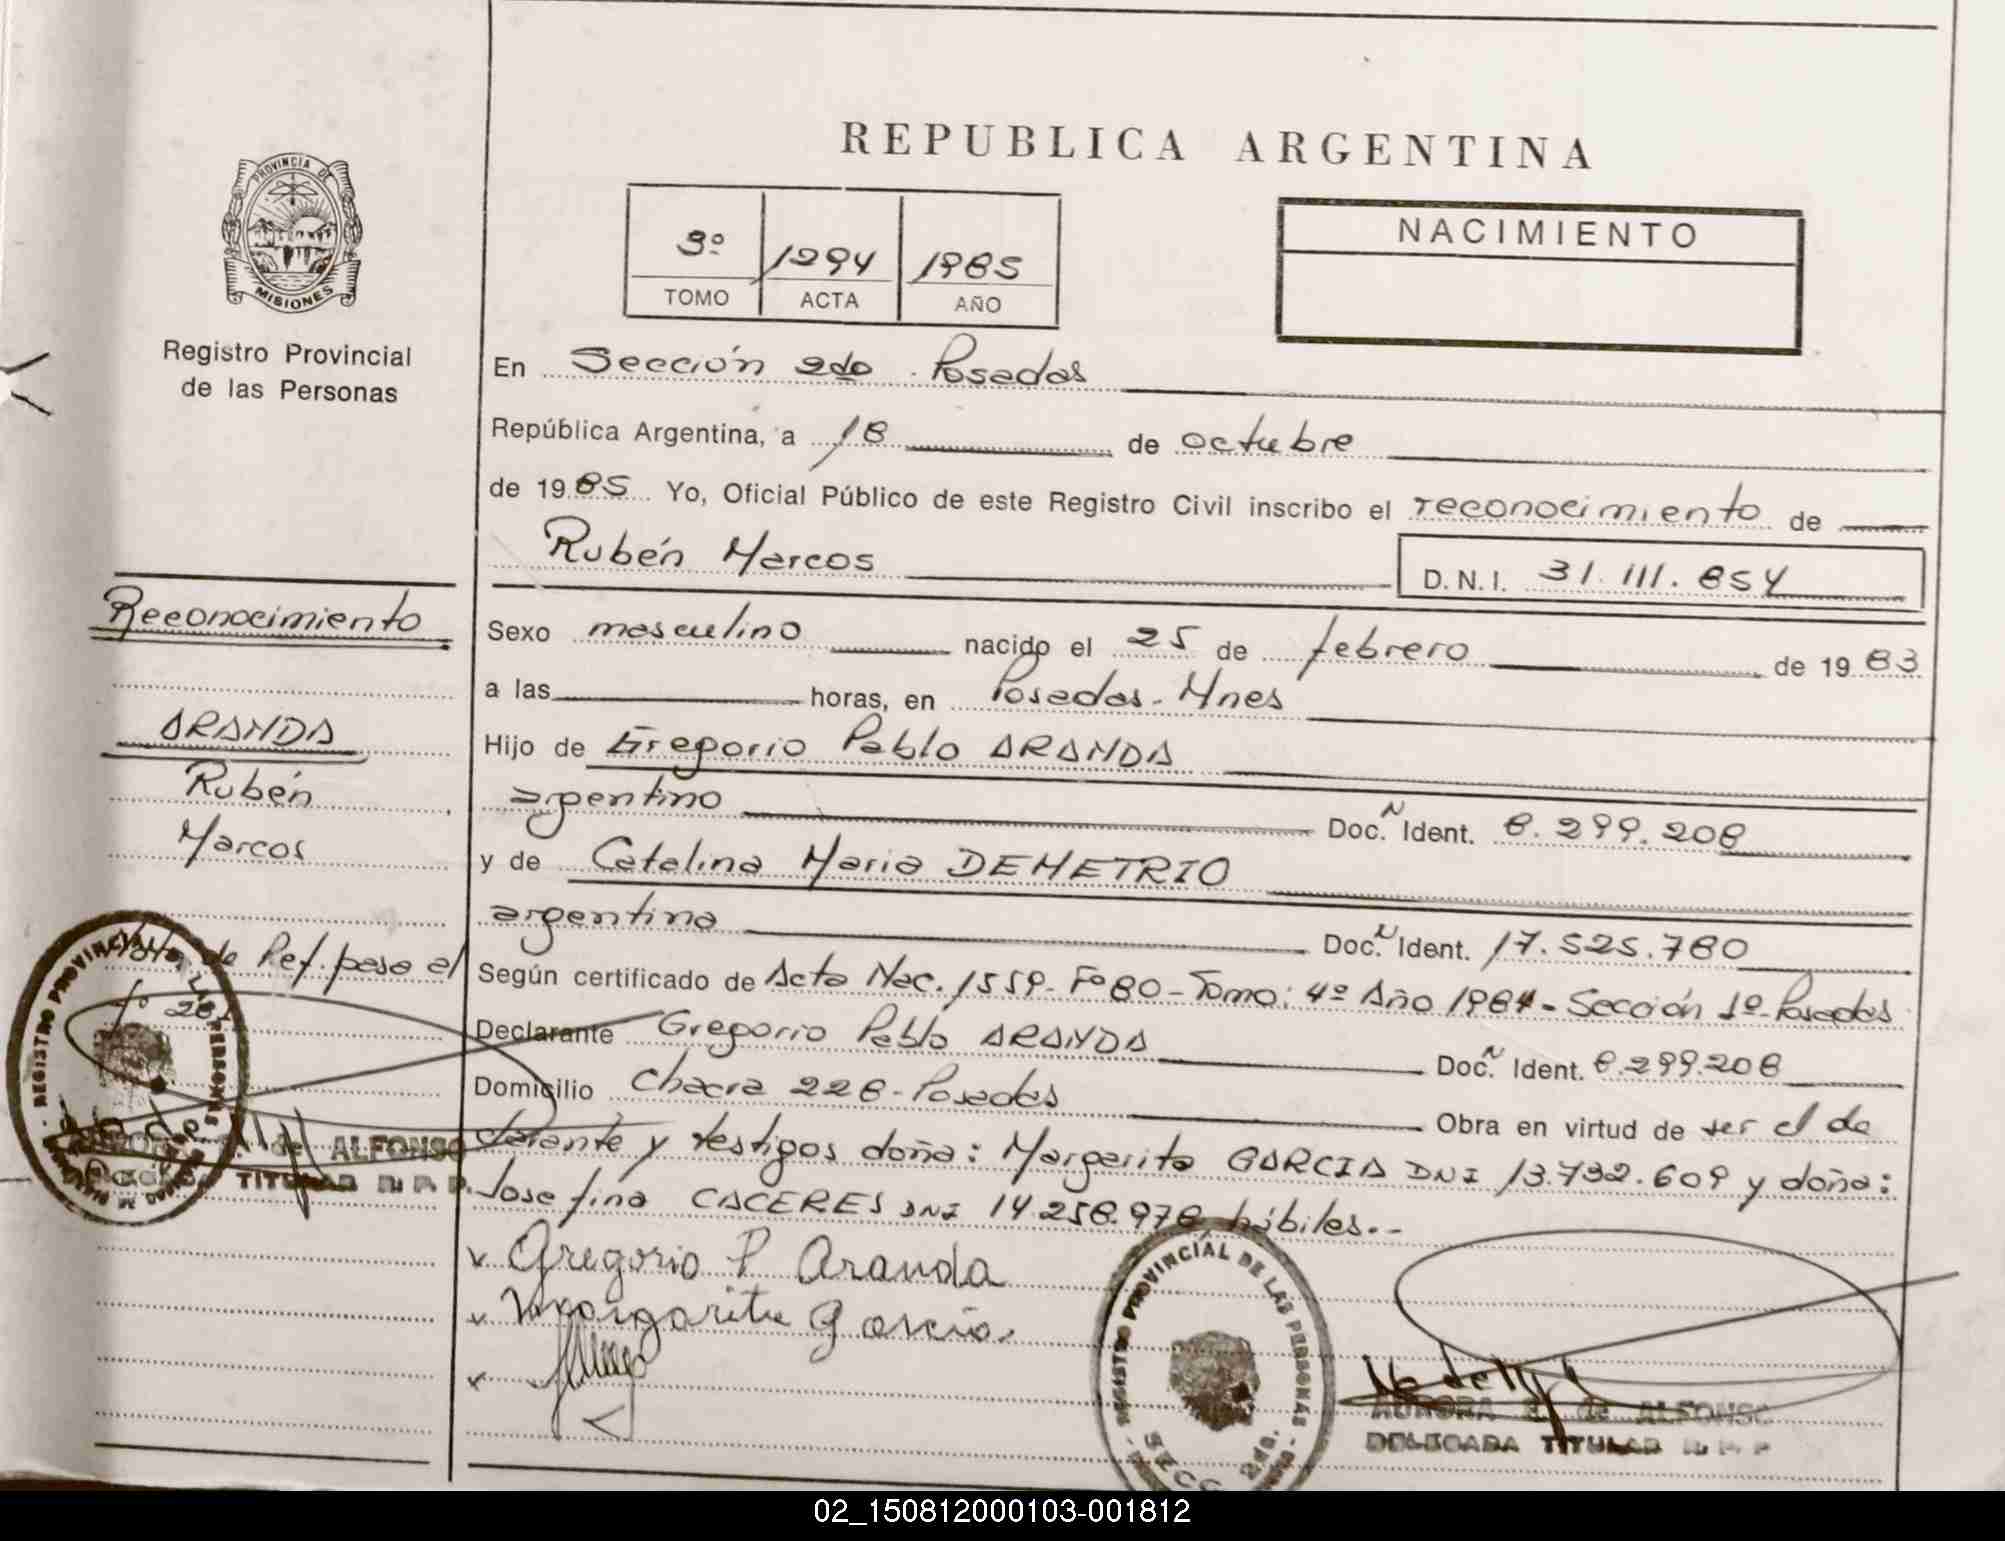 REPUBLICA ARGENTINA
PROVINCIA DE
MISIONES
Registro Provincial
de las Personas
3º 1294 1985
TOMO ACTA AÑO
NACIMIENTO
En Sección 2da Posadas
República Argentina, a 18 de octubre
de 1985 Yo, Oficial Público de este Registro Civil inscribo el reconocimiento de
Rubén Marcos D.N.I. 31.111.854
Reconocimiento
ARANDA
Rubén
Marcos
Nota de Ref. pasa al
fº 281
Sexo masculino nacido el 25 de febrero de 1983
a las horas, en Posadas-Mnes
Hijo de Gregorio Pablo ARANDA
argentino Doc. N Ident. 8.299.208
y de Catalina Maria DEMETRIO
argentina Doc. N Ident. 17.525.780
Según certificado de Acta Nac. 1559-Fº80-Tomo: 4º Año 1984-Sección 1º-Posadas
Declarante Gregorio Pablo ARANDA Doc. N Ident. 8.299.208
Domicilio Chacra 228-Posadas Obra en virtud de ser el de
clarante y testigos doña: Margarita GARCIA DNI 13.732.609 y doña:
Josefina CACERES DNI 14.258.978 hábiles.-
x Gregorio P Aranda
x Margarita Garcia.
x
REGISTRO PROVINCIAL DE LAS PERSONAS
ALFONSO
TITULAR R. P. P.
REGISTRO PROVINCIAL DE LAS PERSONAS
SECC. 2da.
AURORA de ALFONSO
DELEGADA TITULAR R. P. P
02_150812000103-001812